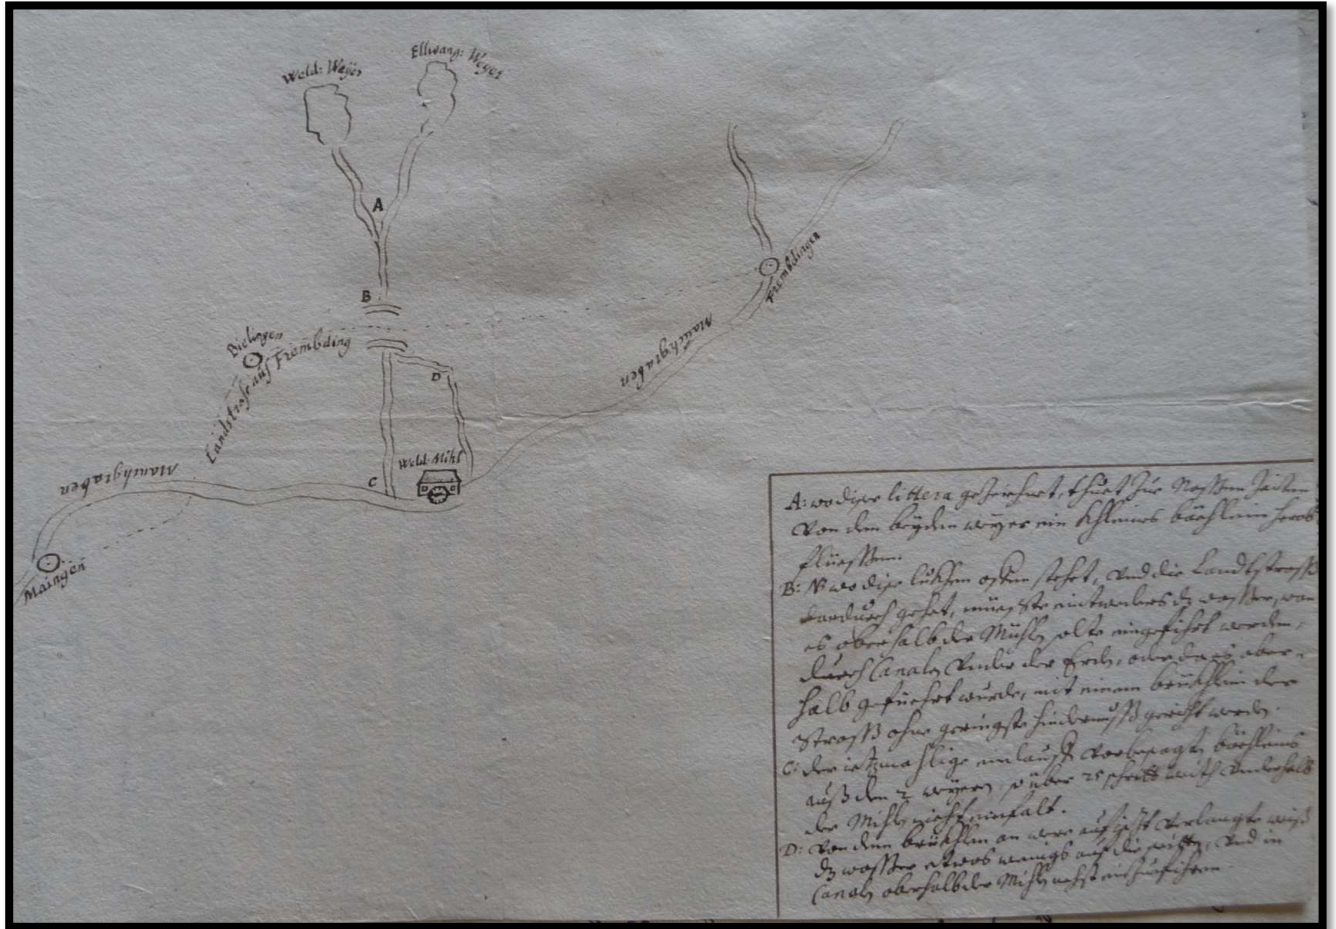 Weld: Weyer
Ellwang: Weyer
A
B
Frembdingen
Bielingen
Landtstrase auf Frembding
Mauchgraben
D
Mauchgraben
Weld Mihl
C
Maingen
A: wo diser littera gezeichnet, thuet zur Nassen Zeiten
von den beyden weyer ein khleines bächlein herab
fliessen.
B: wo dise lukhen offen stehet, und die Landtstrass
dardurch gehet, müesste eintweders dz wasser, wan
es oberhalb der Mühl solte eingefihrt werden,
durch Canaln under der Erden, oder da es ober-
halb gefuehrt wurde, mit einem brückhlein der
Strass ohne geringste hindernuss gericht werden.
C: der ietzmahlige einlauff vorbesagten bächleins
auss den 2 weyern, so über 25 schritt weith underhalb
der Mihl einfalt.
D: von dem brückhlein an were auf verlangte weiss
dz wasser etwas wenigs auf die seitten, und in
Canaln oberhalb der Mihl einzufihren.